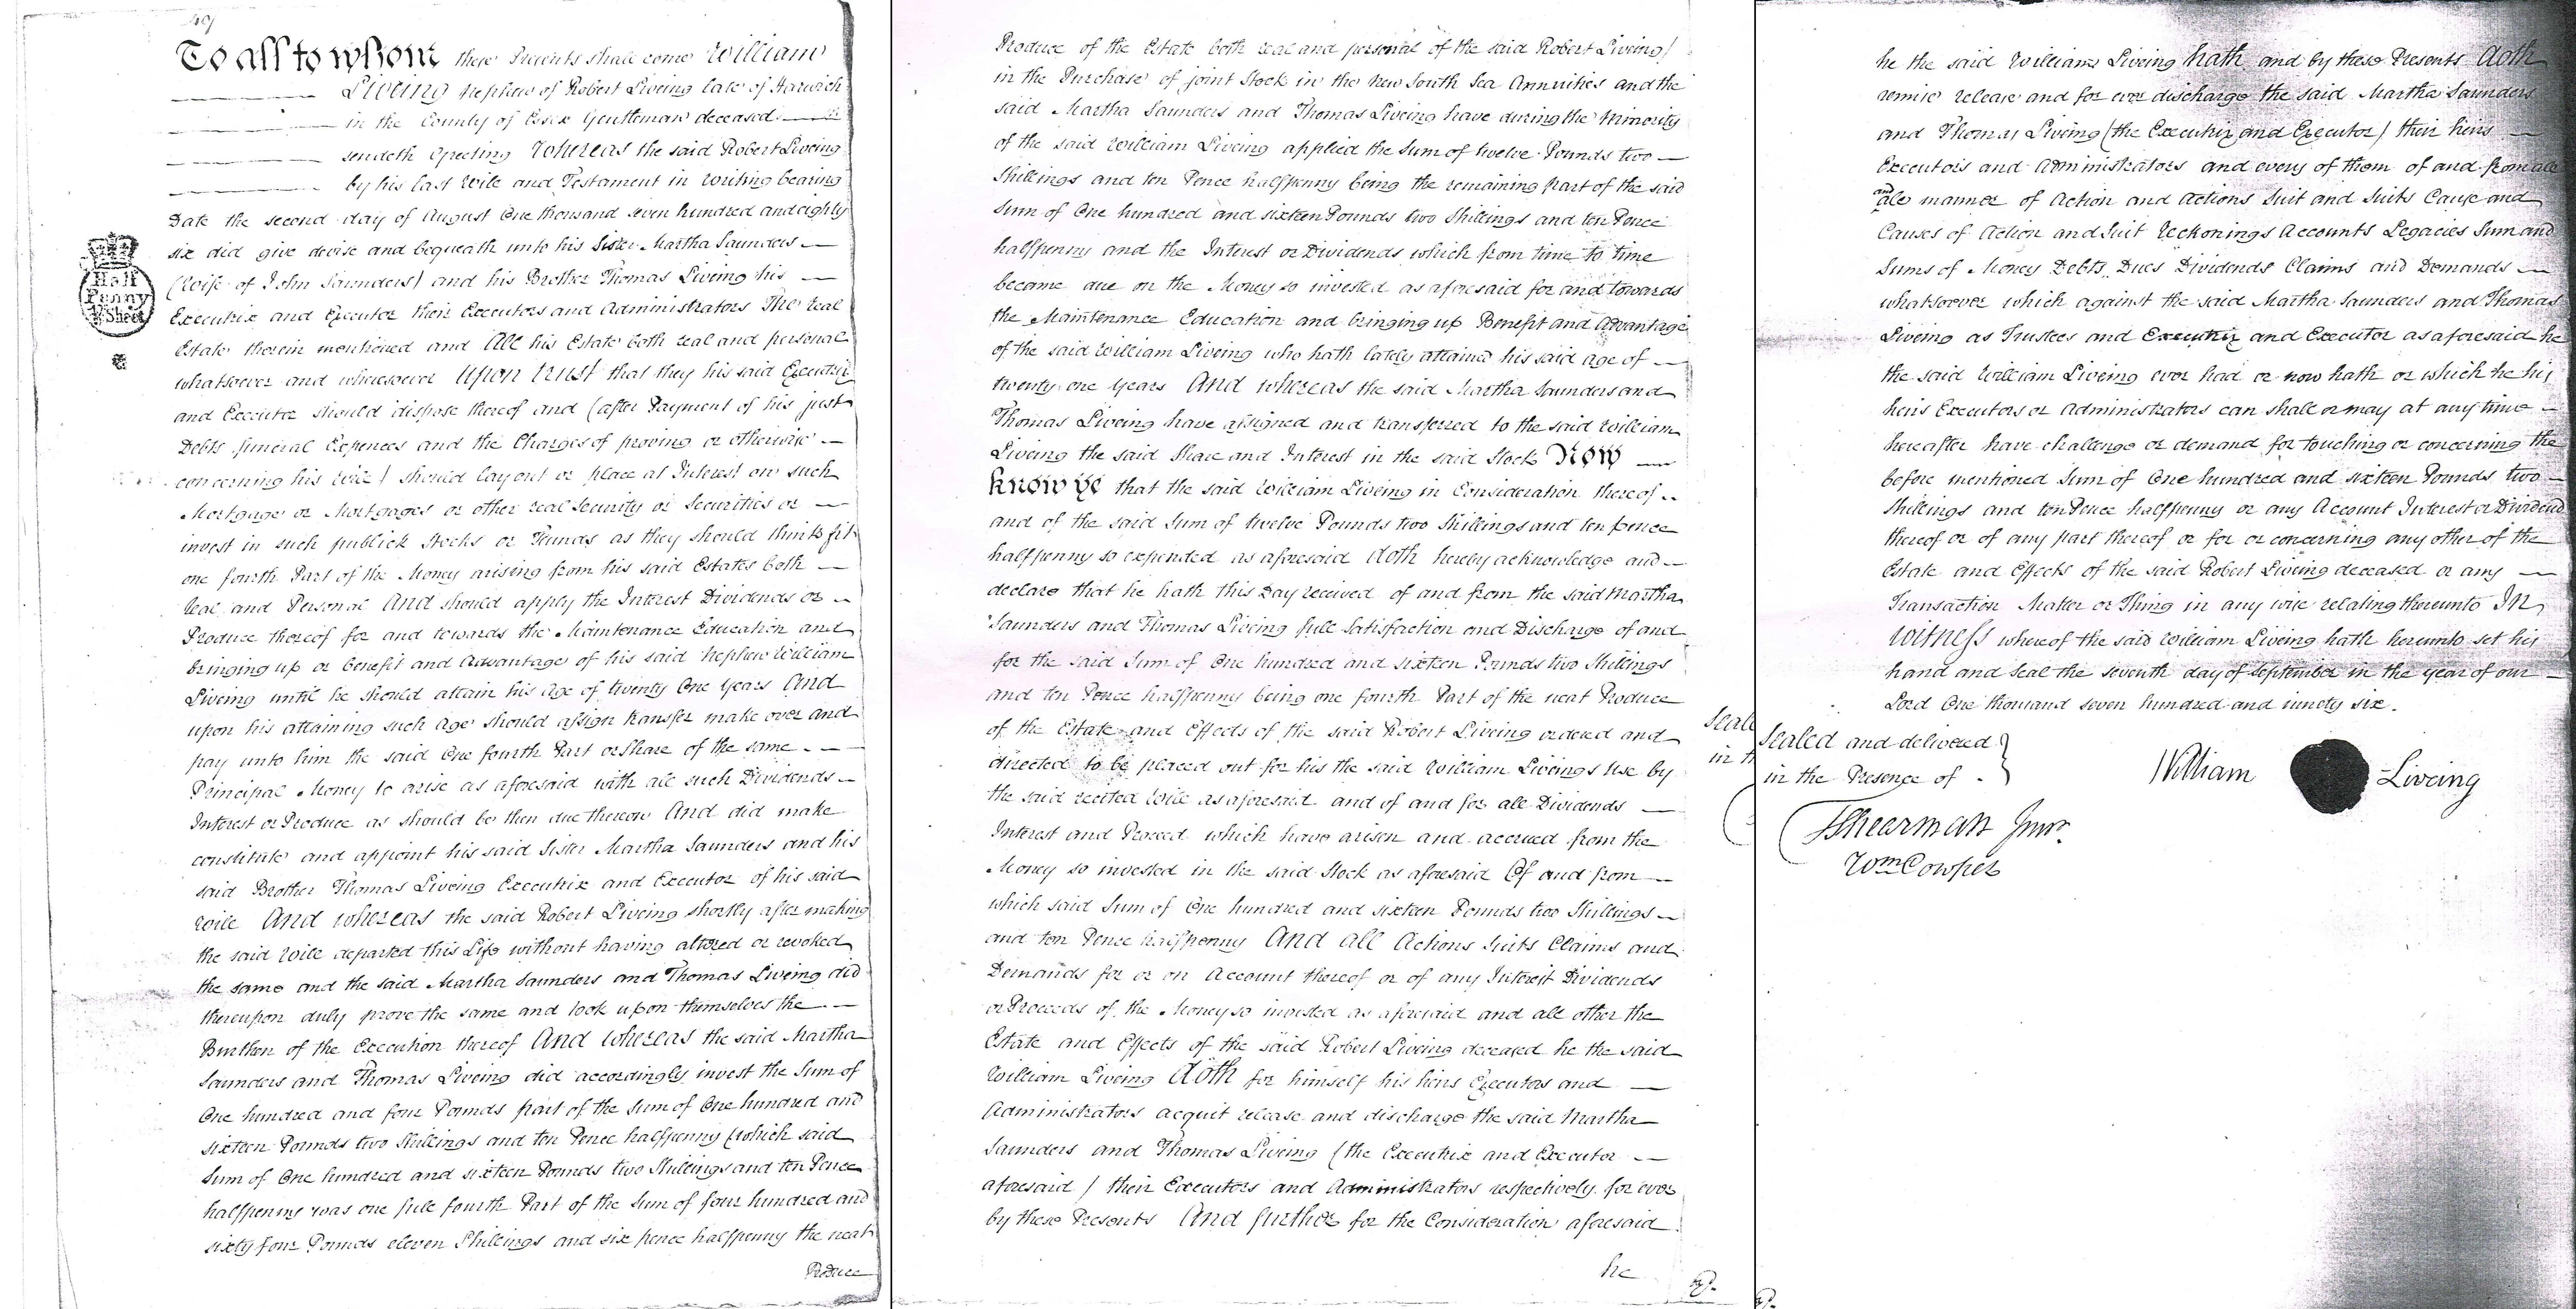 49
To all to whom these Presents shall come William
Liveing Nephew of Robert Liveing late of Harwich
in the County of Essex Gentleman deceased
sendeth Greeting Whereas the said Robert Liveing
by his last Will and Testament in Writing bearing
Date the second day of August One thousand seven hundred and eighty
six did give devise and bequeath unto his Sister Martha Saunders
(Wife of John Saunders) and his Brother Thomas Liveing his
Executrix and Executor their Executors and Administrators The real
Estate therein mentioned and All his Estate both real and personal
whatsoever and wheresoever Upon trust that they his said Executrix
and Executor should dispose thereof and (after Payment of his just
Debts funeral Expences and the Charges of proving or otherwise
concerning his Will) should lay out or place at Interest on such
Mortgage or Mortgages or other real Security or Securities or
invest in such publick Stocks or Funds as they should think fit
one fourth Part of the Money arising from his said Estates both
real and Personal And should apply the Interest Dividends or
Produce thereof for and towards the Maintenance Education and
bringing up or benefit and Advantage of his said Nephew William
Liveing until he should attain his Age of twenty One Years And
upon his attaining such Age should assign transfer make over and
pay unto him the said One fourth Part or Share of the same
Principal Money to arise as aforesaid with all such Dividends
Interest or Produce as should be then due thereon And did make
constitute and appoint his said Sister Martha Saunders and his
said Brother Thomas Liveing Executrix and Executor of his said
Will And whereas the said Robert Liveing shortly after making
the said Will departed this Life without having altered or revoked
the same and the said Martha Saunders and Thomas Liveing did
thereupon duly prove the same and took upon themselves the
Burthen of the Execution thereof And whereas the said Martha
Saunders and Thomas Liveing did accordingly invest the Sum of
One hundred and four Pounds part of the Sum of One hundred and
sixteen Pounds two Shillings and ten Pence halfpenny (which said
Sum of One hundred and sixteen Pounds two Shillings and ten Pence
halfpenny was one full fourth Part of the Sum of four hundred and
sixty four Pounds eleven Shillings and six pence halfpenny the neat
Produce
Half
Penny
Sheet
Produce of the Estate both real and personal of the said Robert Liveing)
in the Purchase of joint Stock in the New South Sea Annuities and the
said Martha Saunders and Thomas Liveing have during the Minority
of the said William Liveing applied the Sum of twelve Pounds two
Shillings and ten Pence halfpenny being the remaining part of the said
Sum of One hundred and sixteen Pounds two Shillings and ten Pence
halfpenny and the Interest or Dividends which from time to time
became due on the Money so invested as aforesaid for and towards
the Maintenance Education and bringing up Benefit and Advantage
of the said William Liveing who hath lately attained his said age of
twenty one years And whereas the said Martha Saunders and
Thomas Liveing have assigned and transferred to the said William
Liveing the said Share and Interest in the said Stock Now
know ye that the said William Liveing in Consideration thereof
and of the said Sum of twelve Pounds two Shillings and ten pence
halfpenny so expended as aforesaid doth hereby acknowledge and
declare that he hath this Day received of and from the said Martha
Saunders and Thomas Liveing full Satisfaction and Discharge of and
for the said Sum of One hundred and sixteen Pounds two Shillings
and ten Pence halfpenny being one fourth Part of the neat Produce
of the Estate and Effects of the said Robert Liveing ordered and
directed to be placed out for his the said William Liveings Use by
the said recited Will as aforesaid and of and for all Dividends
Interest and Proceed which have arisen and accrued from the
Money so invested in the said Stock as aforesaid Of and from
which said Sum of One hundred and sixteen Pounds two Shillings
and ten Pence halfpenny And all Actions Suits Claims and
Demands for or on Account thereof or of any Interest Dividends
or Proceeds of the Money so invested as aforesaid and all other the
Estate and Effects of the said Robert Liveing deceased he the said
William Liveing doth for himself his heirs Executors and
Administrators acquit release and discharge the said Martha
Saunders and Thomas Liveing (the Executrix and Executor
aforesaid) their Executors and Administrators respectively for ever
by these Presents And further for the Consideration aforesaid
he
he the said William Liveing hath and by these Presents doth
remise release and for ever discharge the said Martha Saunders
and Thomas Liveing (the Executrix and Executor) their heirs
Executors and Administrators and every of them of and from all
and all manner of Action and Actions Suit and Suits Cause and
Causes of Action and Suit Reckonings Accounts Legacies Sum and
Sums of Money Debts Dues Dividends Claims and Demands
whatsoever which against the said Martha Saunders and Thomas
Liveing as Trustees and Executrix and Executor as aforesaid he
the said William Liveing ever had or now hath or which he his
heirs Executors or Administrators can shall or may at any time
hereafter have challenge or demand for touching or concerning the
before mentioned Sum of One hundred and sixteen Pounds two
Shillings and ten Pence halfpenny or any Account Interest or Dividend
thereof or of any part thereof or for or concerning any other of the
Estate and Effects of the said Robert Liveing deceased or any
Transaction Matter or Thing in any wise relating thereunto In
Witness whereof the said William Liveing hath hereunto set his
hand and Seal the seventh day of September in the year of our
Lord One thousand seven hundred and ninety six.
Sealed and delivered
in the Presence of
William Liveing
Shearman Junr.
Wm Cowper